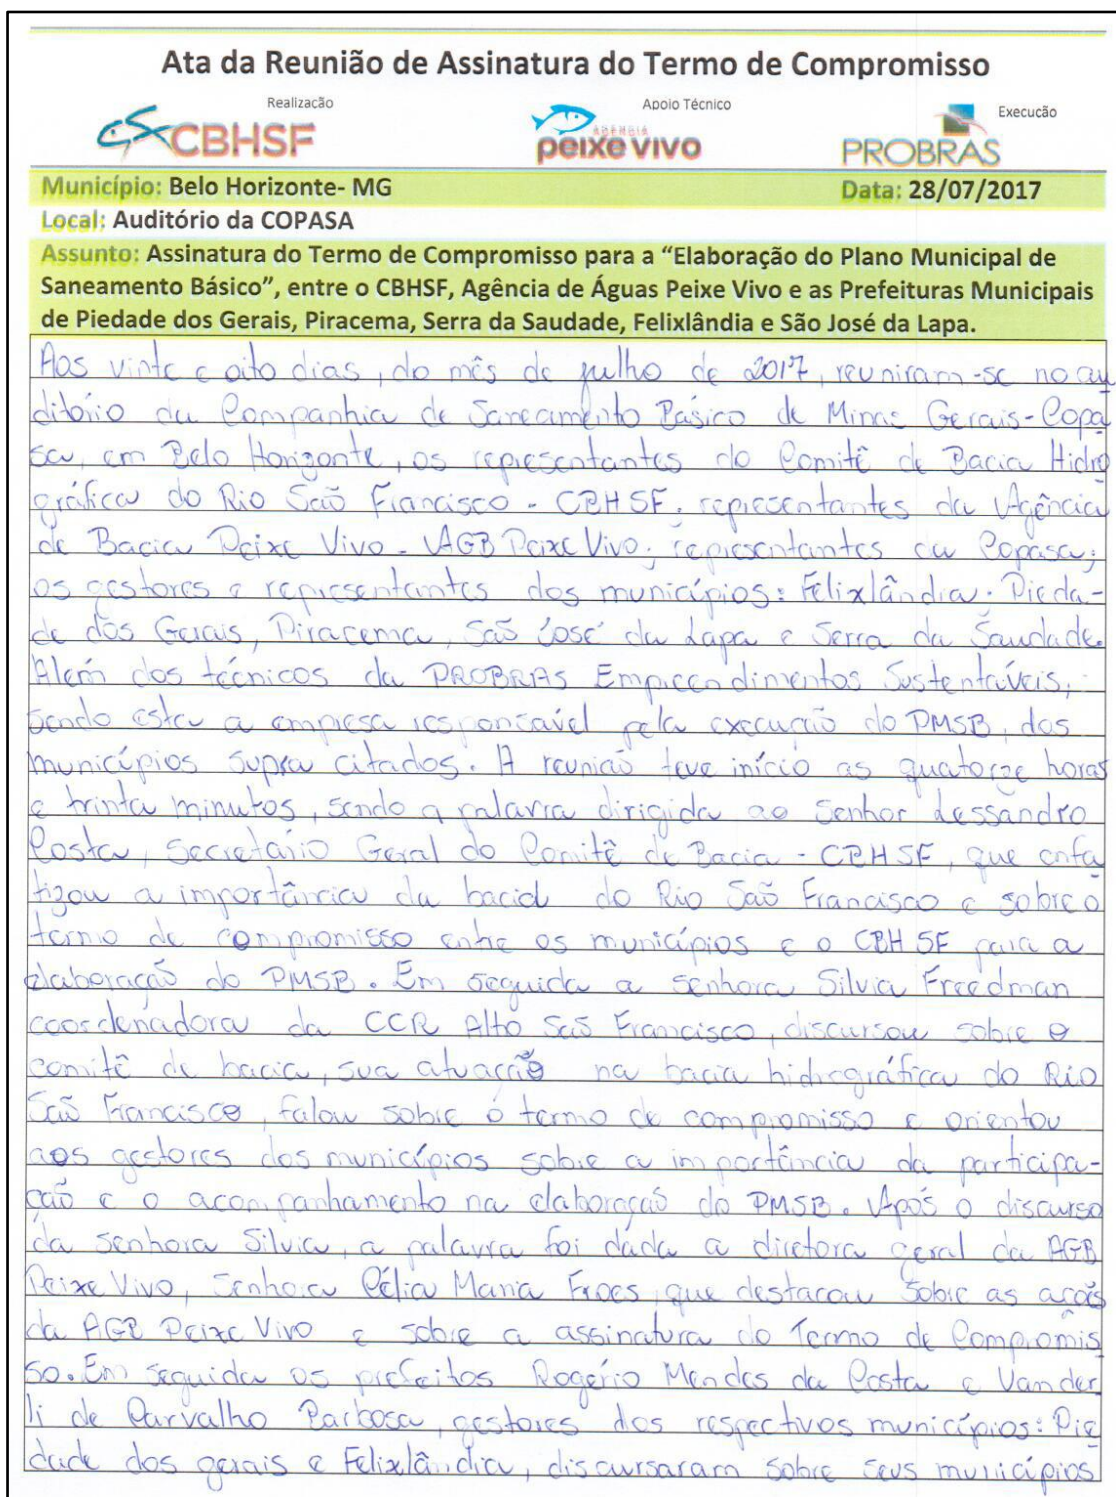 Ata da Reunião de Assinatura do Termo de Compromisso
Realização
CBHSF
Apoio Técnico
AGÊNCIA
peixe vivo
Execução
PROBRAS
Município: Belo Horizonte- MG Data: 28/07/2017
Local: Auditório da COPASA
Assunto: Assinatura do Termo de Compromisso para a “Elaboração do Plano Municipal de
Saneamento Básico”, entre o CBHSF, Agência de Águas Peixe Vivo e as Prefeituras Municipais
de Piedade dos Gerais, Piracema, Serra da Saudade, Felixlândia e São José da Lapa.
Aos vinte e oito dias, do mês de julho de 2017, reuniram-se no au
ditório da Companhia de Saneamento Básico de Minas Gerais-Copa
sa, em Belo Horizonte, os representantes do Comitê de Bacia Hidro
gráfica do Rio São Francisco - CBHSF, representantes da Agência
de Bacia Peixe Vivo - AGB Peixe Vivo; representantes da Copasa;
os gestores e representantes dos municípios: Felixlândia. Pieda-
de dos Gerais, Piracema, São José da Lapa e Serra da Saudade.
Além dos técnicos da PROBRAS Empreendimentos Sustentáveis,
sendo esta a empresa responsável pela execução do PMSB, dos
municípios supra citados. A reunião teve início as quatorze horas
e trinta minutos, sendo a palavra dirigida ao Senhor Lessandro
Costa, Secretário Geral do Comitê de Bacia - CBHSF, que enfa
tizou a importância da bacia do Rio São Francisco e sobre o
termo de compromisso entre os municípios e o CBHSF para a
elaboração do PMSB. Em seguida a senhora Silvia Freedman
coordenadora da CCR Alto São Francisco, discursou sobre o
comitê de bacia, sua atuação na bacia hidrográfica do Rio
São Francisco, falou sobre o termo de compromisso e orientou
aos gestores dos municípios sobre a importância da participa-
ção e o acompanhamento na elaboração do PMSB. Após o discurso
da senhora Silvia, a palavra foi dada a diretora geral da AGB
Peixe Vivo, Senhora Célia Maria Froes, que destacou sobre as ações
da AGB Peixe Vivo e sobre a assinatura do Termo de Compromis
so. Em seguida os prefeitos Rogério Mendes da Costa e Vander
li de Carvalho Barbosa, gestores dos respectivos municípios: Pie
dade dos gerais e Felixlândia, discursaram sobre seus municípios